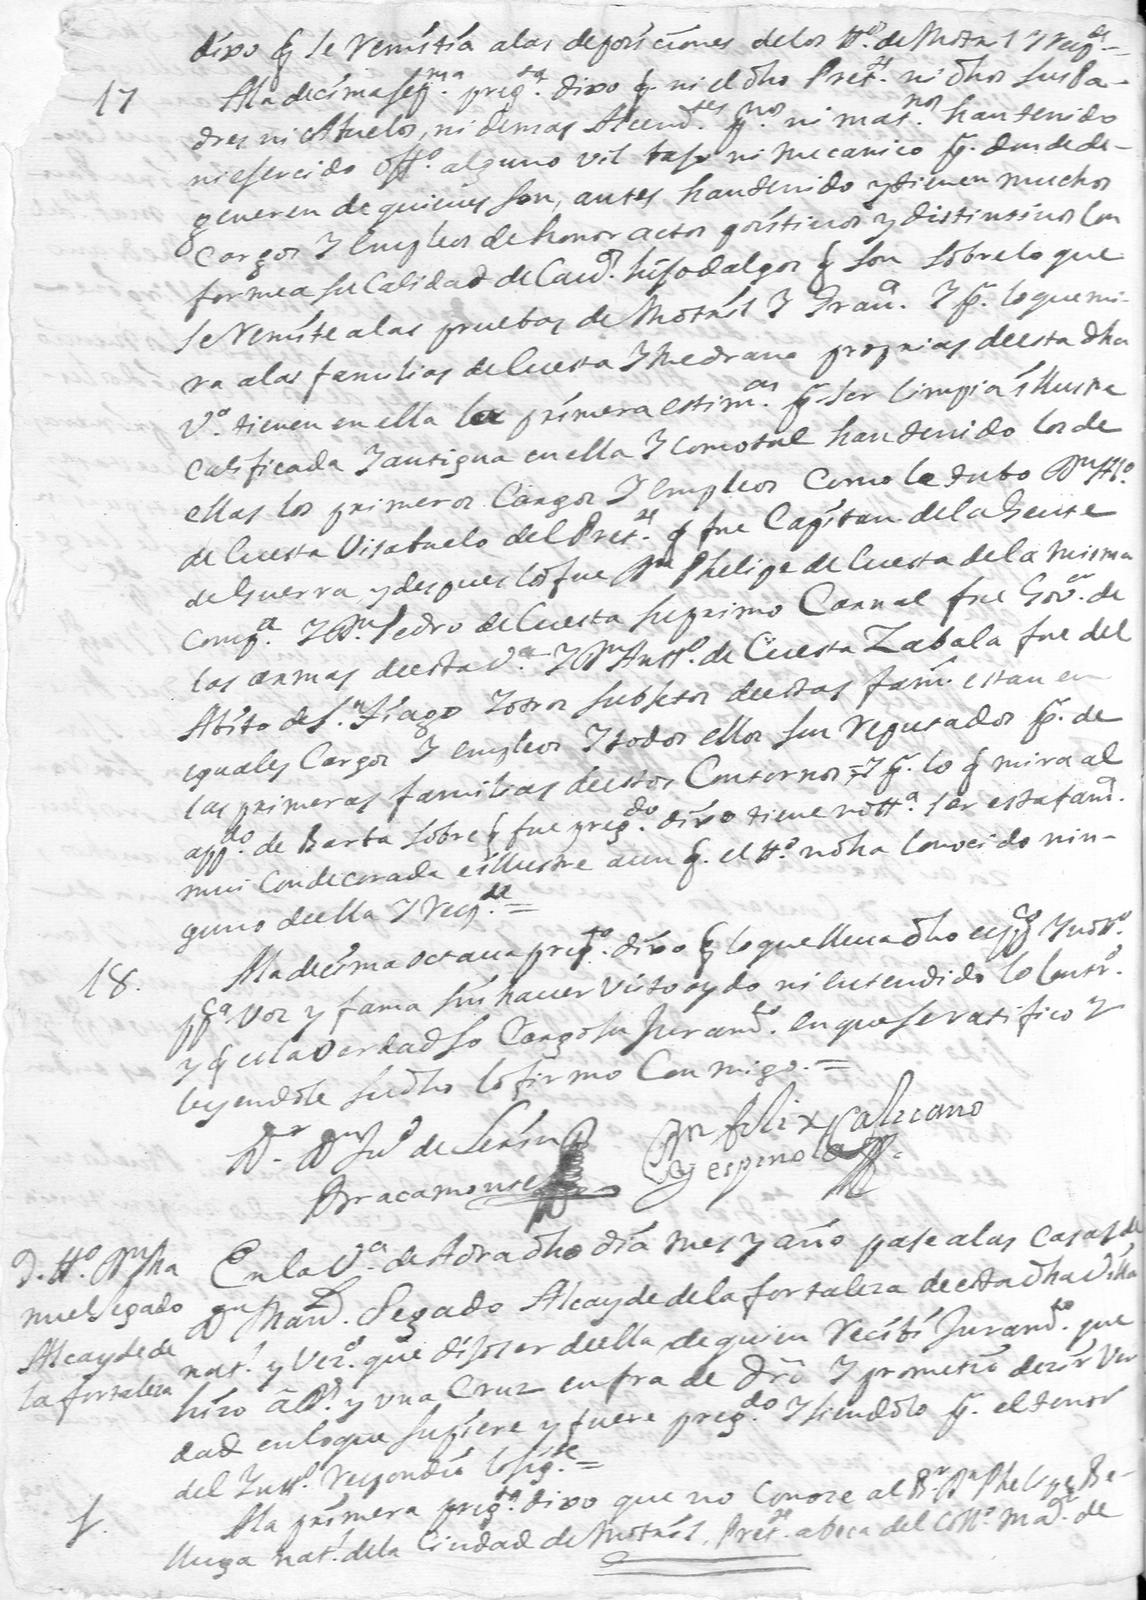 dixo q̃ se remitia a las deposiciones de los tt.º de Motril y resp.de
17 A la decima sep.ma preg.ta dixo q̃. ni el dho Pret.te ni dhos sus Pa-
dres ni Abuelos, ni demas Ascend.tes p.nos ni mat.nos han tenido
ni esercido off.º alguno vil baxo ni mecanico p.r donde de-
generen de quienes son, antes han tenido y tienen muchos
cargos y empleos de honor actos positivos y distintivos con
forme a su calidad de Cav.os hijosdalgos q̃ son sobre lo que
se remite a las pruebas de Motril y Gran.a y p.r lo que mi-
ra a las familias de Cuesta y Medrano propias de esta dha
V.a tienen en ella la primera estim.on p.r ser limpia illustre
calificada y antigua en ella y como tal han tenido los de
ellas los primeros cargos y empleos como le tubo D.n
de Cuesta Visabuelo del Pret.te q̃ fue Capitan de la Gente
de Guerra, y despues lo fue D.n Phelipe de Cuesta de la misma
Comp.a y D.n Pedro de Cuesta su primo Carnal fue Gov.or de
las armas de esta V.a y D.n Antt.º de Cuesta Zabala fue del
Abito de S.n Tiago y otros subjetos de estas fam.s estan en
iguales cargos y empleos y todos ellos son reputados p.r de
las primeras familias de estos Contornos; y p.r lo q̃ mira al
app.do de Barba sobre q̃ fue preg.do dixo tiene nott.a ser esta fam.a
mui condecorada e illustre aun q̃. el tt.º no ha conocido nin-
guno de ella y resp.de =
18. A la decima octava preg.ta dixo q̃ lo que lleva dho es pp.co y nott.º
pp.ca voz y fama sin haver visto oydo ni entendido lo Contr.º
y q̃ es la verdad so cargo su Juram.to en que se ratifico y
leyendole su dho lo firmo Conmigo. =
D.r D.n Ju.º de Lerin
Bracamonte
D.n Felix Galicano
y espinola
D. tt.º D.n Ma
nuel Segado
Alcayde de
la fortaleza
En la V.a de Adra dho dia mes y año pase a las casas de
D.n Man.l Segado Alcayde de la fortaleza de esta dha Villa
nat.l y vez.º que dijo ser de ella de quien recibi Juram.to que
hizo a D.s y una Cruz en fra de dro y prometio decir ver
dad en lo que supiere y fuere preg.do y siendolo p.r el tenor
del Intt.º respondio lo sig.te =
1. A la primera preg.ta dixo que no conoce al B.r D.n Phelipe Be-
lluga nat.l de la Ciudad de Motril, Pret.te a beca del Coll.º Ma.or de